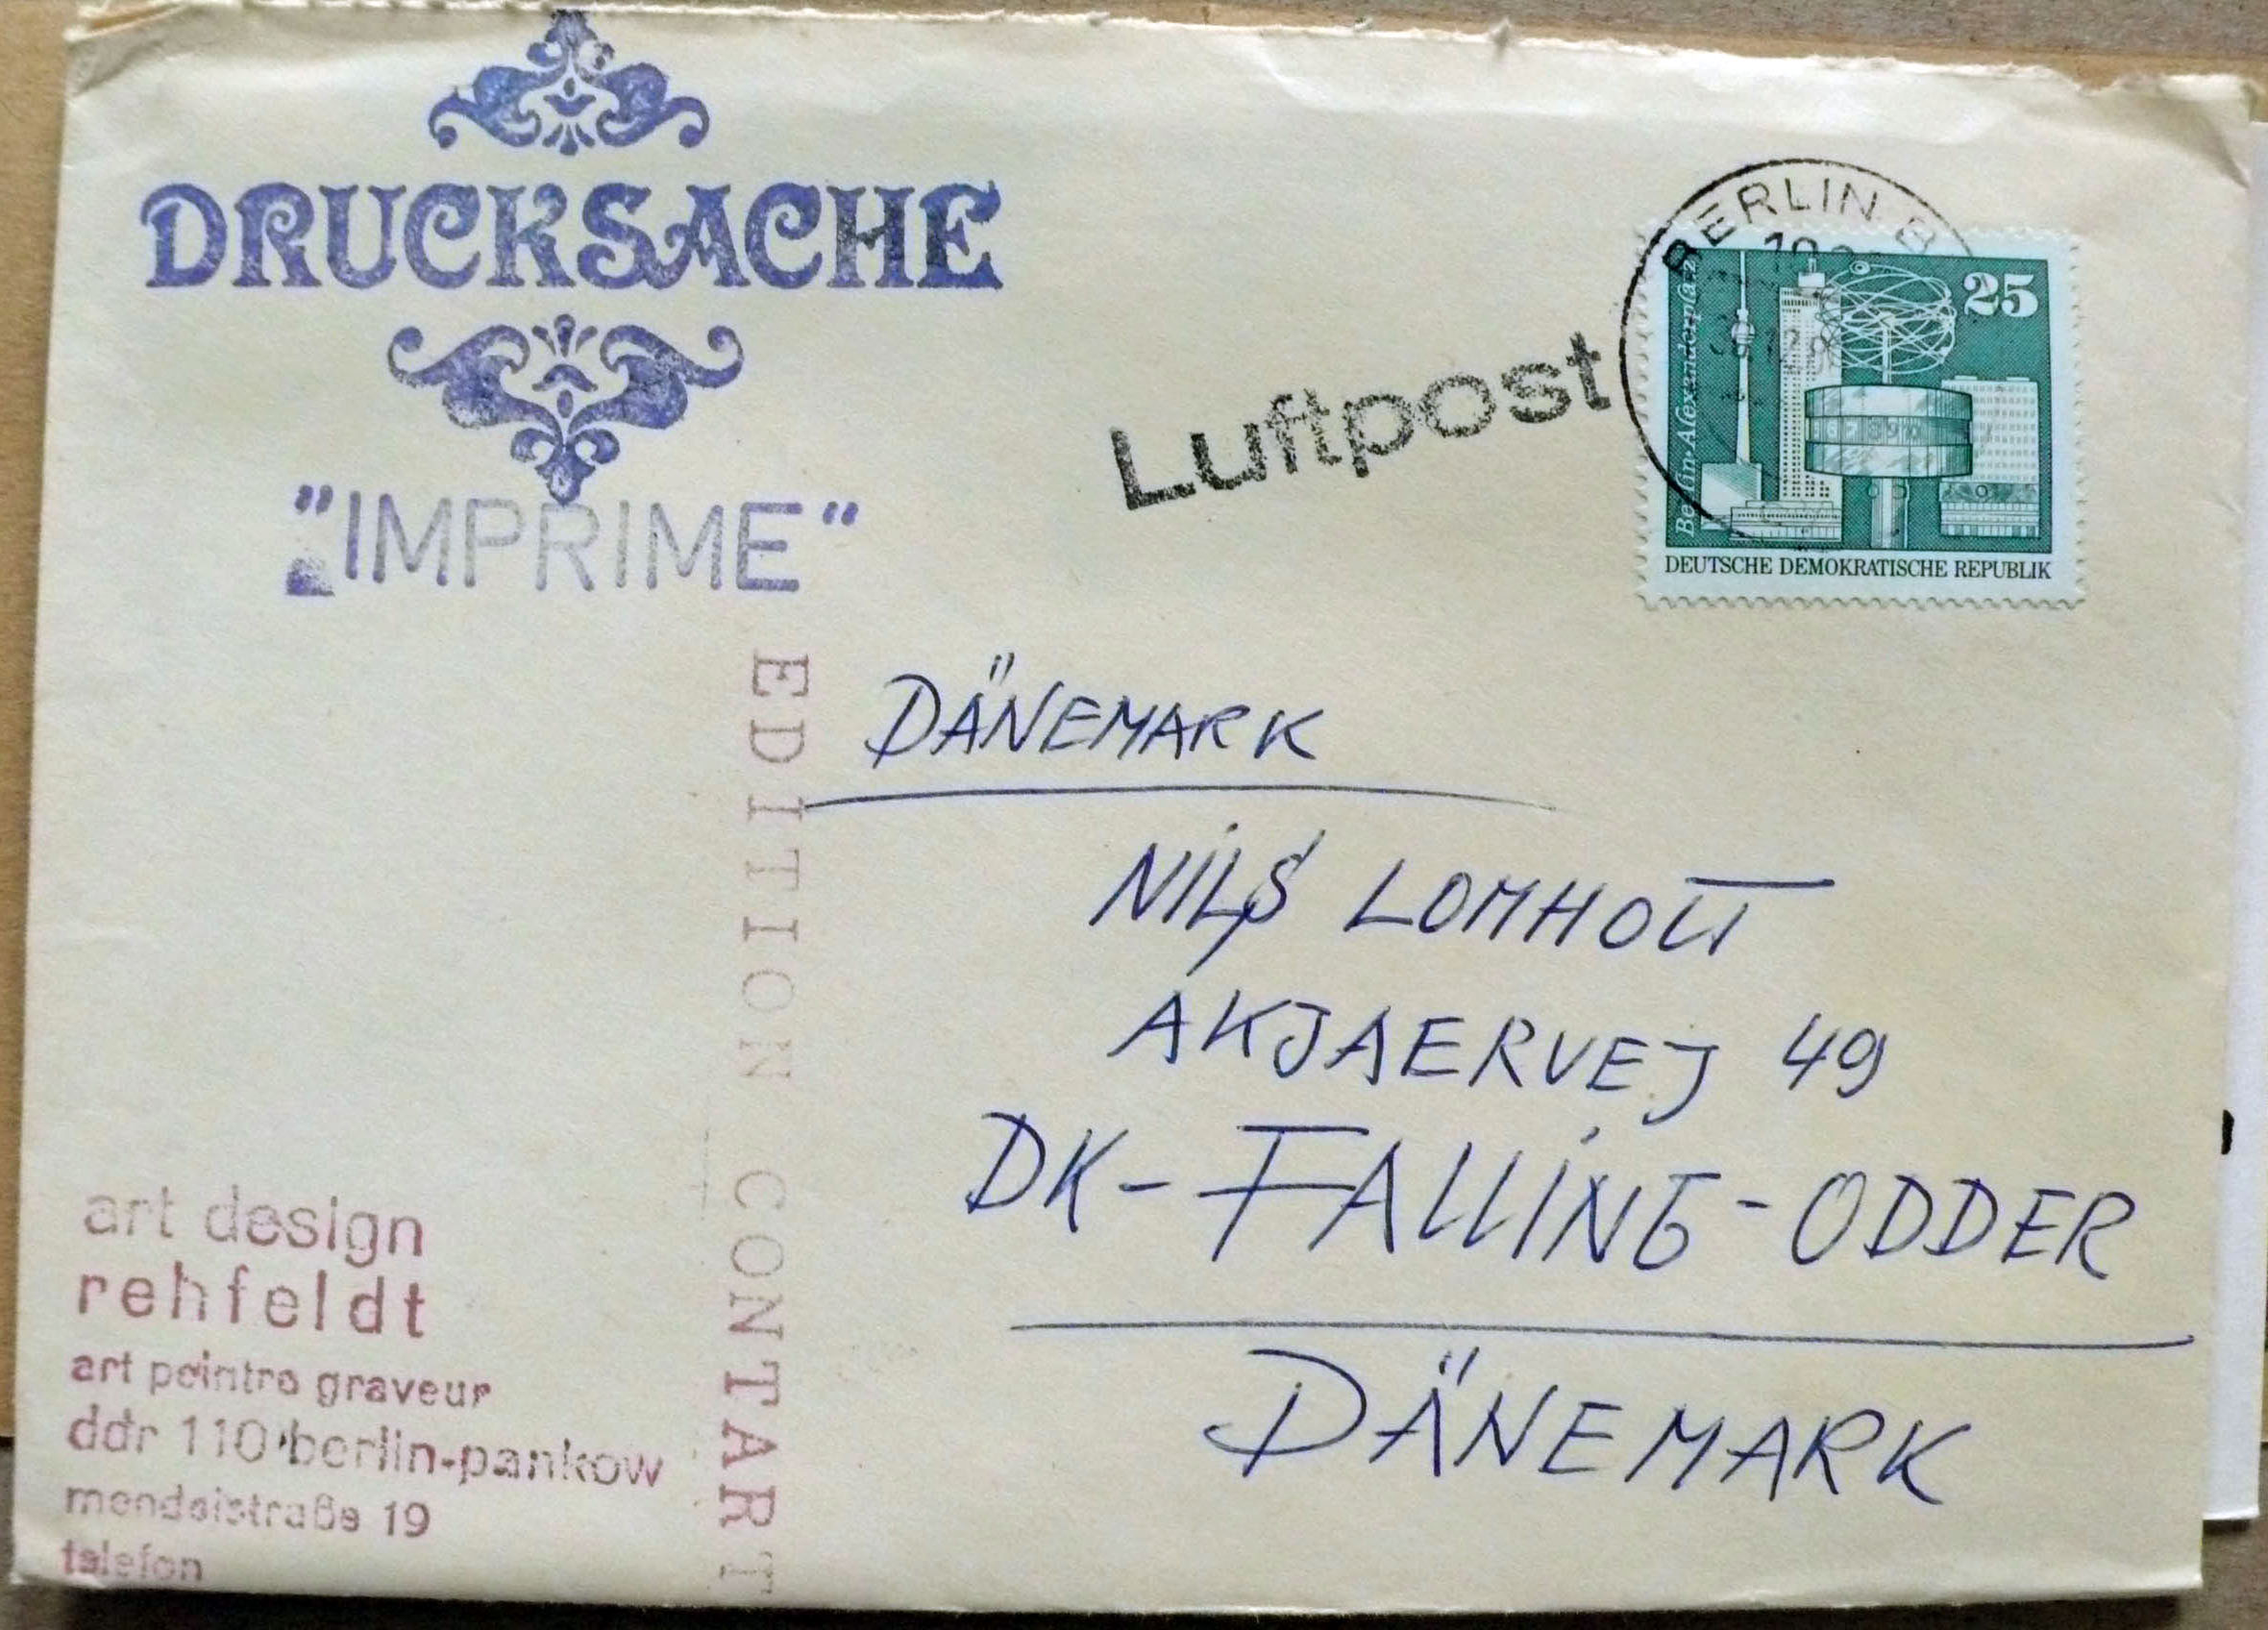 DRUCKSACHE
"IMPRIME"
Luftpost
BERLIN
25
Berlin-Alexanderplatz
DEUTSCHE DEMOKRATISCHE REPUBLIK
DÄNEMARK
NILS LOMHOLT
AKJAERVEJ 49
DK-FALLING-ODDER
DÄNEMARK
EDITION CONTART
art design
rehfeldt
art peintre graveur
ddr 110 berlin-pankow
mendelstraße 19
telefon